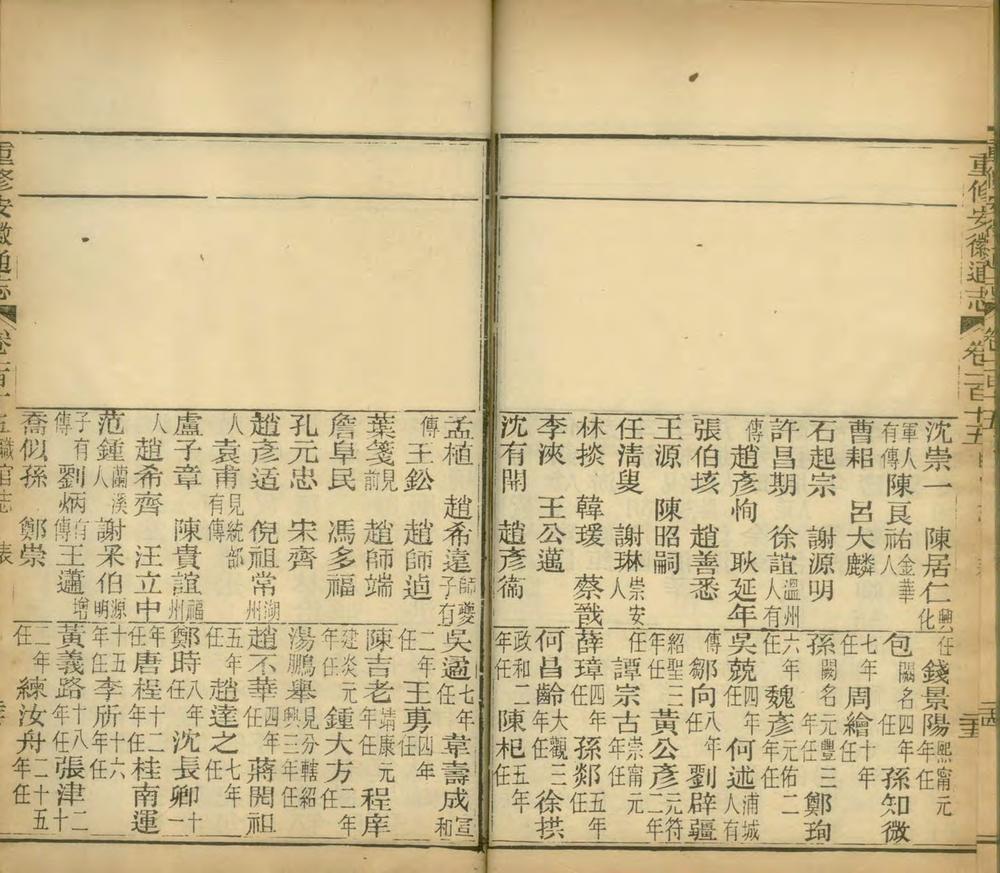 重修安徽通志 卷一百十五
沈崇一 陳居仁興化
軍人有傳陳良祐金華人
曹耜 呂大麟
石起宗 謝源明
許昌期 徐誼溫州人有
傳趙彥恂 耿延年
張伯垓 趙善悉
王源 陳昭嗣
任淸叟 謝琳崇安人
林掞 韓瑗 蔡戩
李浹 王公邁
沈有開 趙彥衞
任錢景陽熙寧元年任
包闕名四年任孫知微
七年任周繪十年任
孫闕名元豐三任鄭珣
六年任魏彥元佑二年任
吳兢四年任何述浦城人有
傳鄒向八年任劉辟疆
紹聖三年任黃公彥元符二年
任譚宗古崇甯元任
薛璋四年任孫郯五年任
何昌齡大觀三任徐拱
政和二年任陳杞五年任
孟植 趙希遠師夔子有
傳王鈆 趙師
葉箋見前 趙師端
詹阜民 馮多福
孔元忠 宋齊
趙彥适 倪祖常湖州
人袁甫見統部有傳
盧子章 陳貴誼福州
人趙希齊 汪立中
范鍾蘭溪人謝采伯源明
子有傳劉炳有傳王薖增
喬似孫 鄭崇
吳逿七年任韋壽成宣和
二年任王 四年任
陳吉老靖康元年任程庠
建炎元年任鍾大方二年任
湯鵬舉見分轄紹興三年任
趙不華四年任蔣閌祖
五年任趙達之七年任
鄭時八年任沈長卿十
年任唐桯十二年任桂南運
十五年任李所十六年任
黃義路十八年任張津二十
二年任練汝舟二十五年任
重修安徽通志 卷一百十五職官志 表